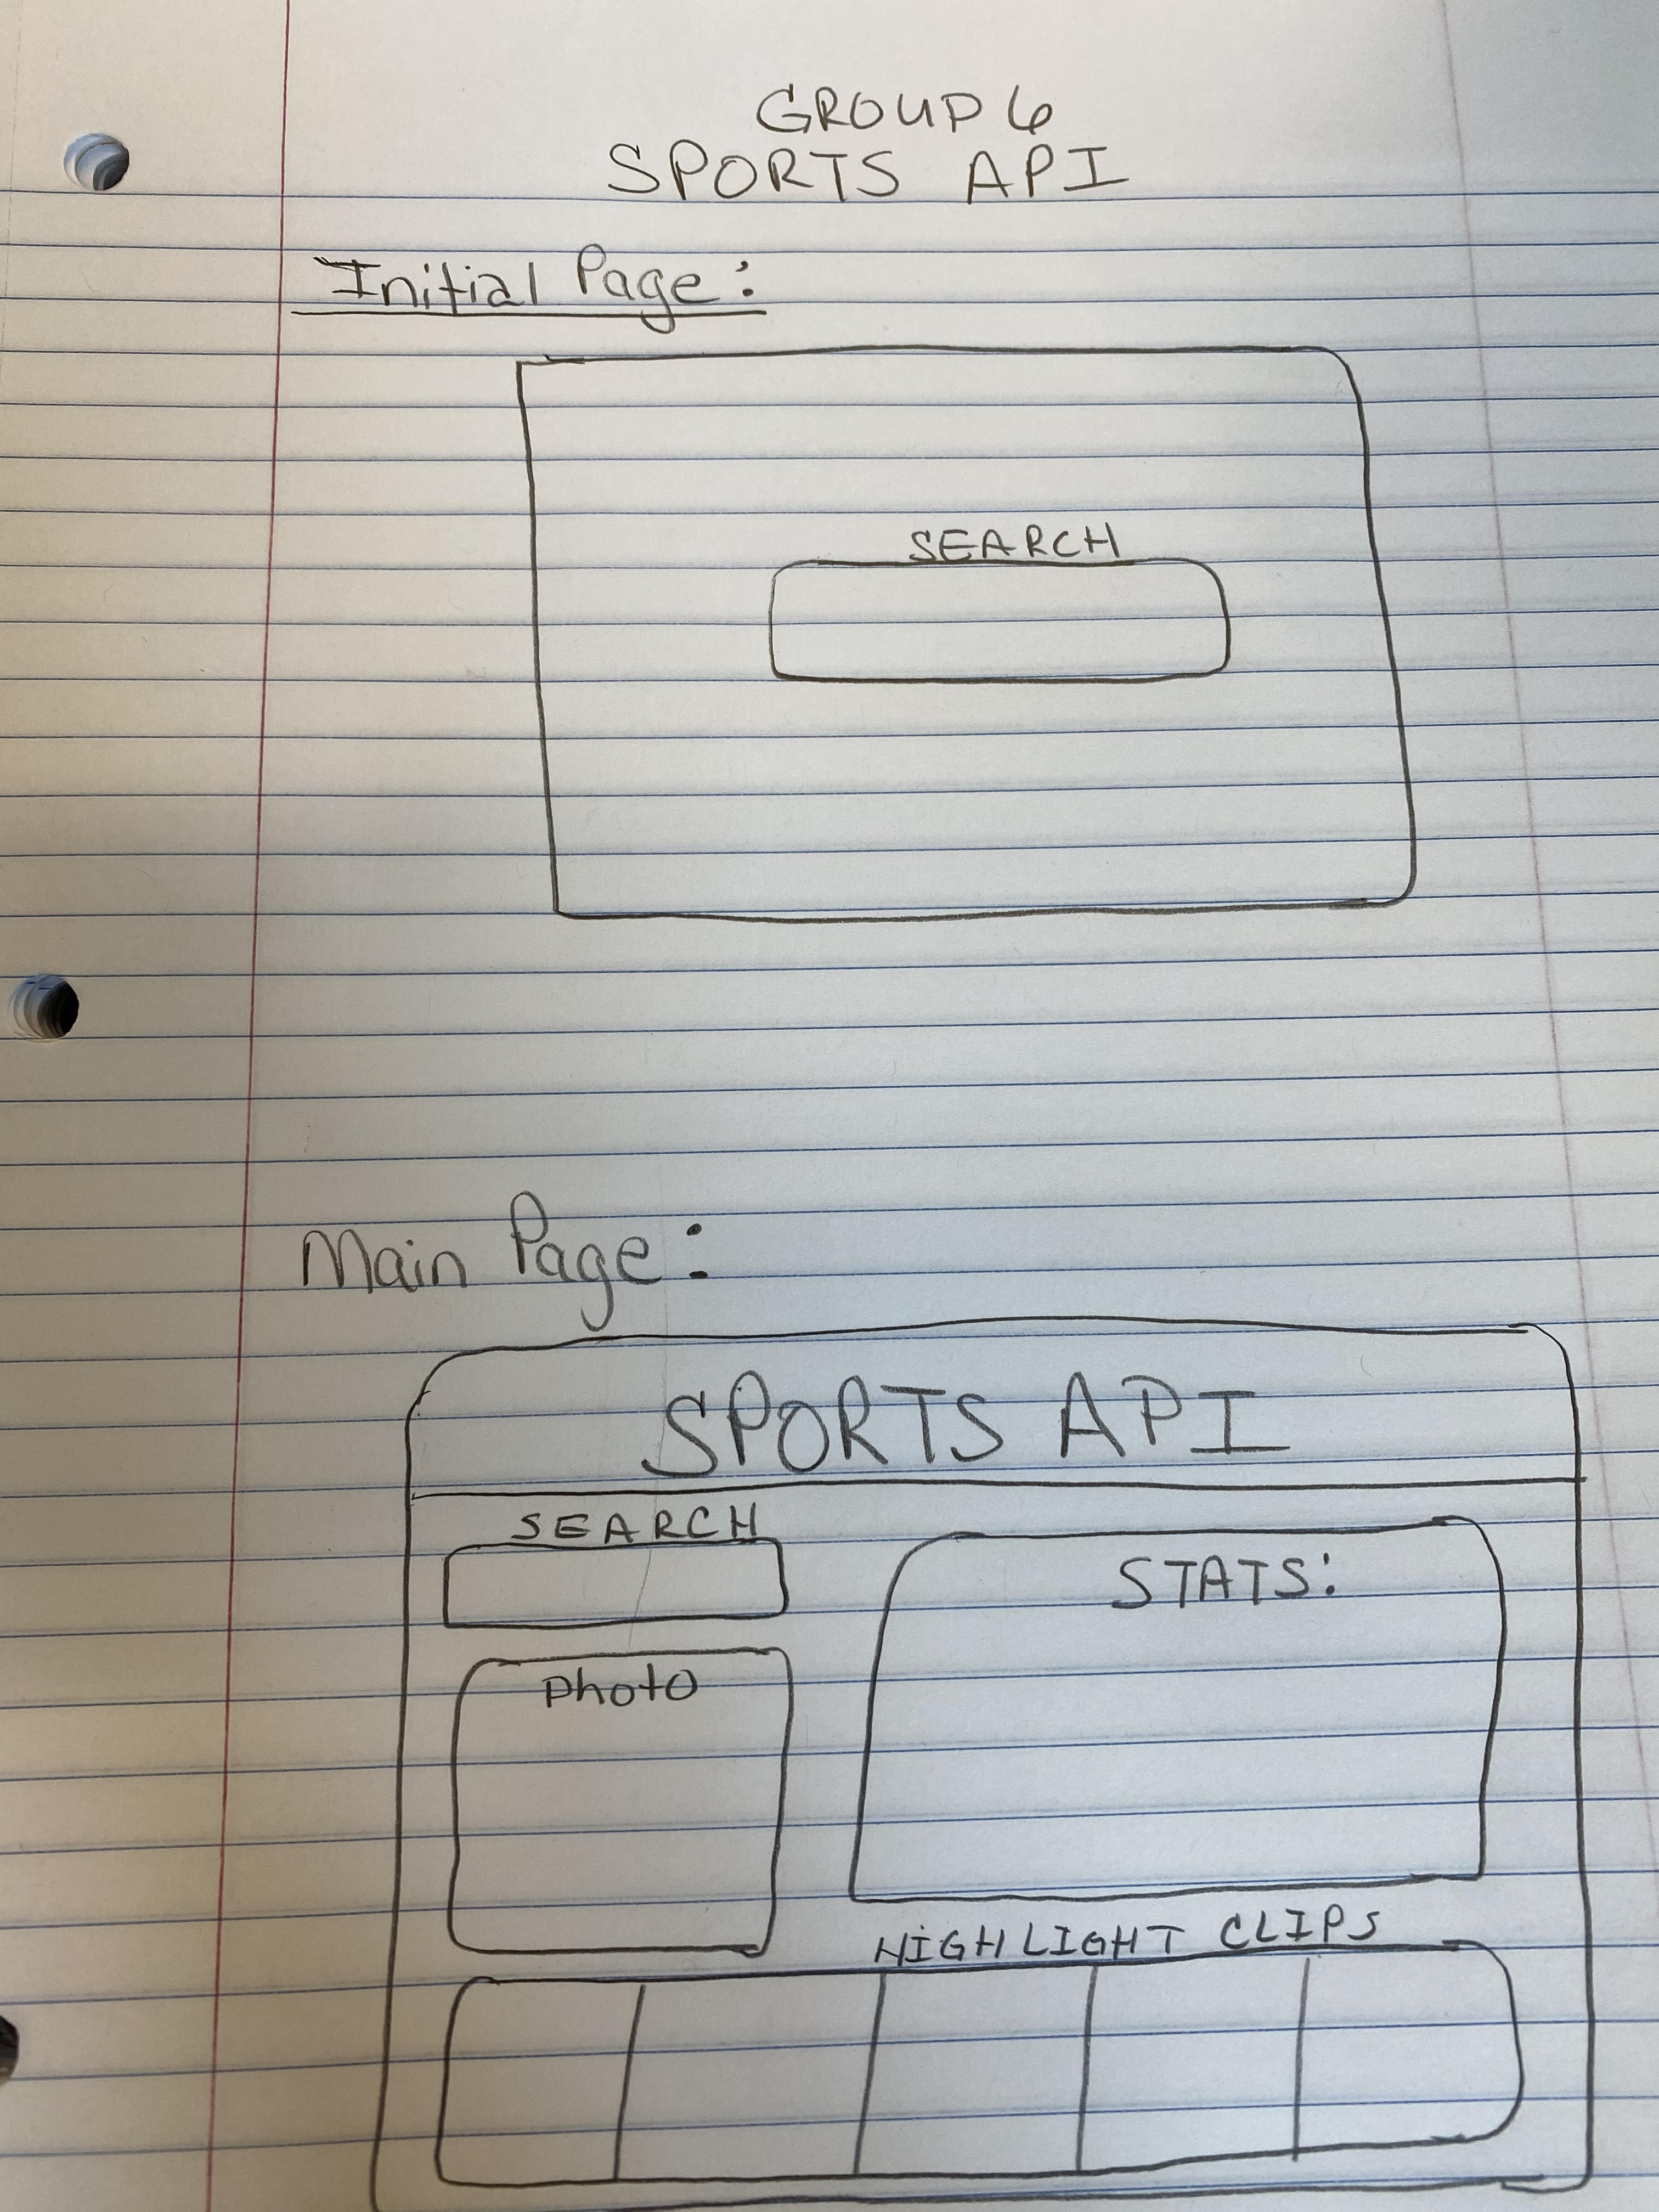 GROUP 6
SPORTS API
Initial Page:
SEARCH
Main Page:
SPORTS API
SEARCH
STATS:
photo
HIGHLIGHT CLIPS